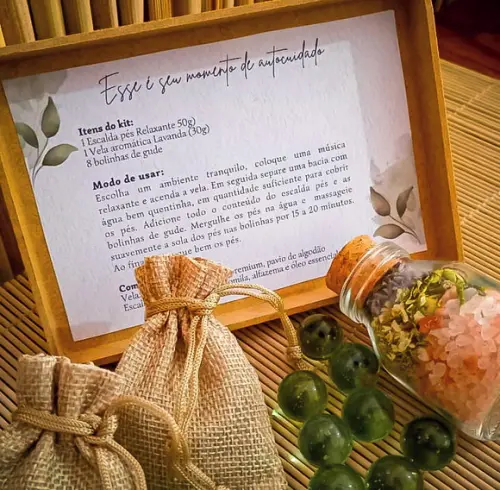 Esse é seu momento de autocuidado
Itens do kit:
1 Escalda pés Relaxante 50g)
1 Vela aromática Lavanda (30g)
8 bolinhas de gude
Modo de usar:
Escolha um ambiente tranquilo, coloque uma música
relaxante e acenda a vela. Em seguida separe uma bacia com
água bem quentinha, em quantidade suficiente para cobrir
os pés. Adicione todo o conteúdo do escalda pés e as
bolinhas de gude. Mergulhe os pés na água e massageie
suavemente a sola dos pés nas bolinhas por 15 a 20 minutos.
Ao fin que bem os pés.
Com
Vela remium, pavio de algodão
Escal mila, alfazema e óleo essencial